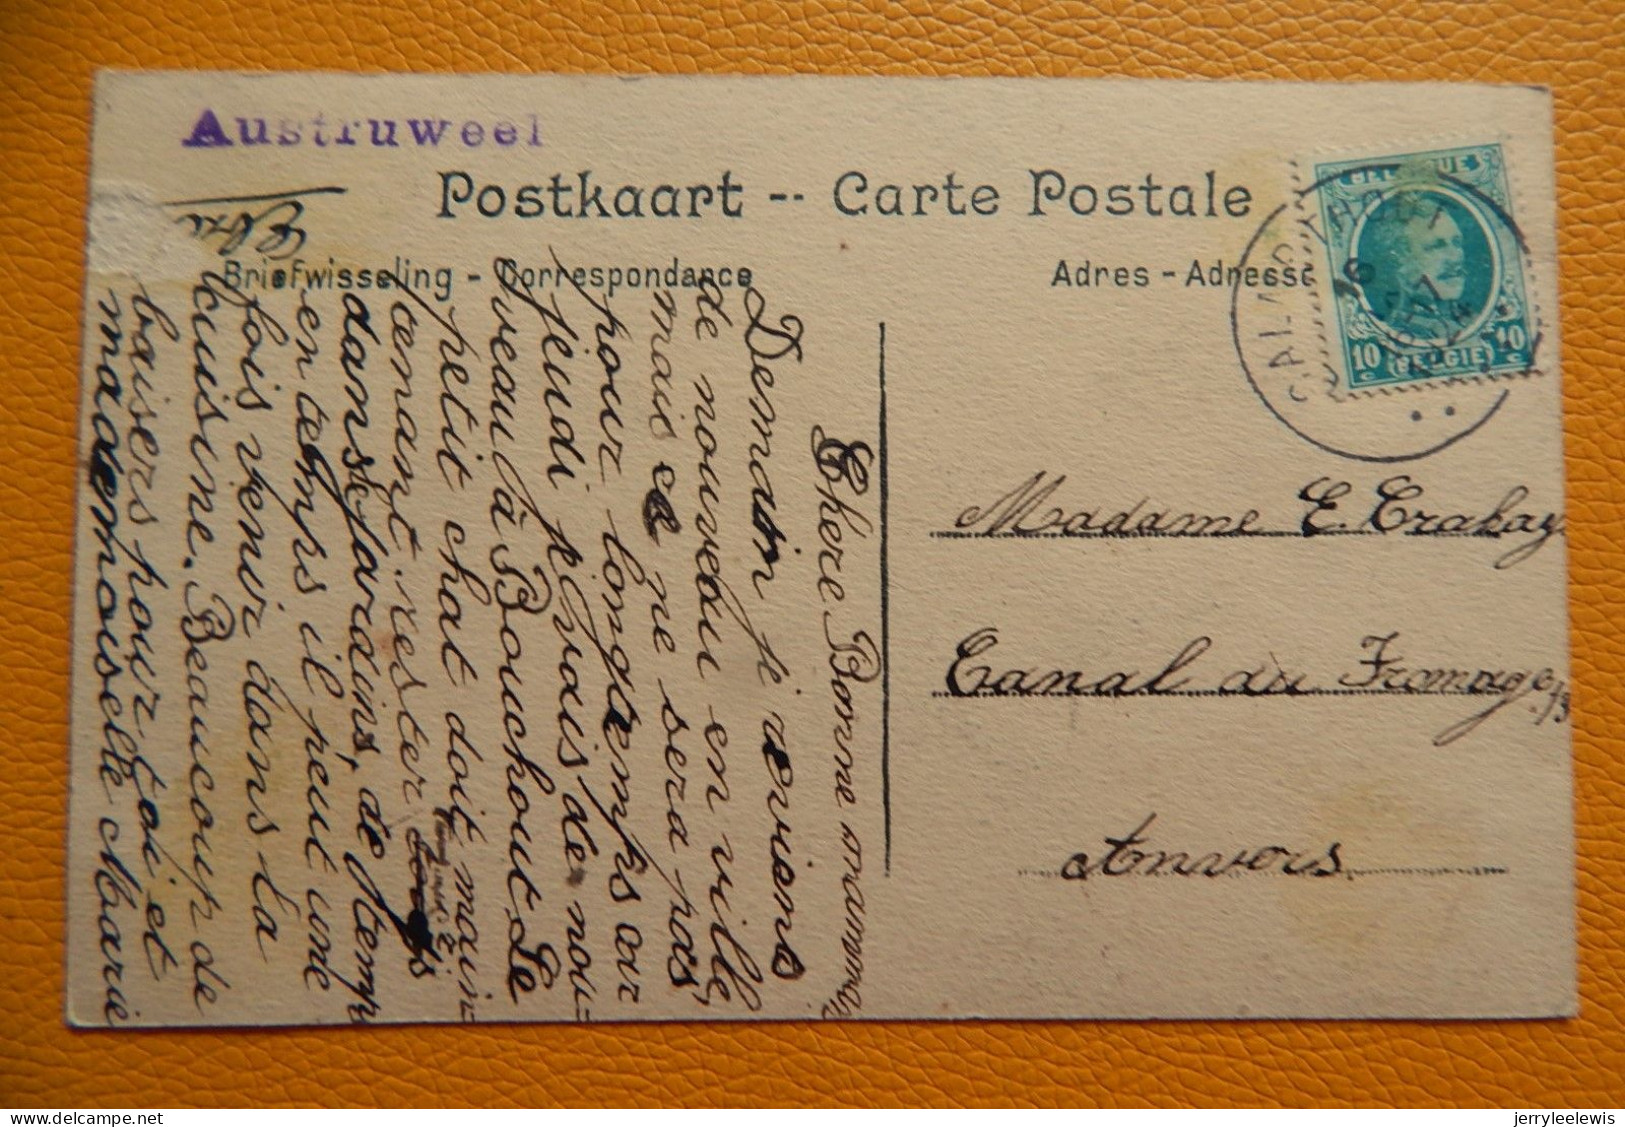 Austruweel
Postkaart -- Carte Postale
Briefwisseling - Correspondance
Adres - Adresse
BELGIQUE
10 c
10 c
(BELGIE)
CALMPTHOUT
16
1924
Chere Bonne maman,
Demain je revisens
de nouveau en ville,
mais ce ne sera pas
pour longtemps car
jeudi je vais de nou-
veau à Bouchout. Le
petit chat doit main-
tenant rester
dans le jardins, de temps
en temps il peut une
fois venir dans la
cuisine. Beaucoup de
baisers pour toi et
mademoiselle Marie
Madame E. Crahay
Canal au Fromage, 13
Anvers.
jerryleelewis